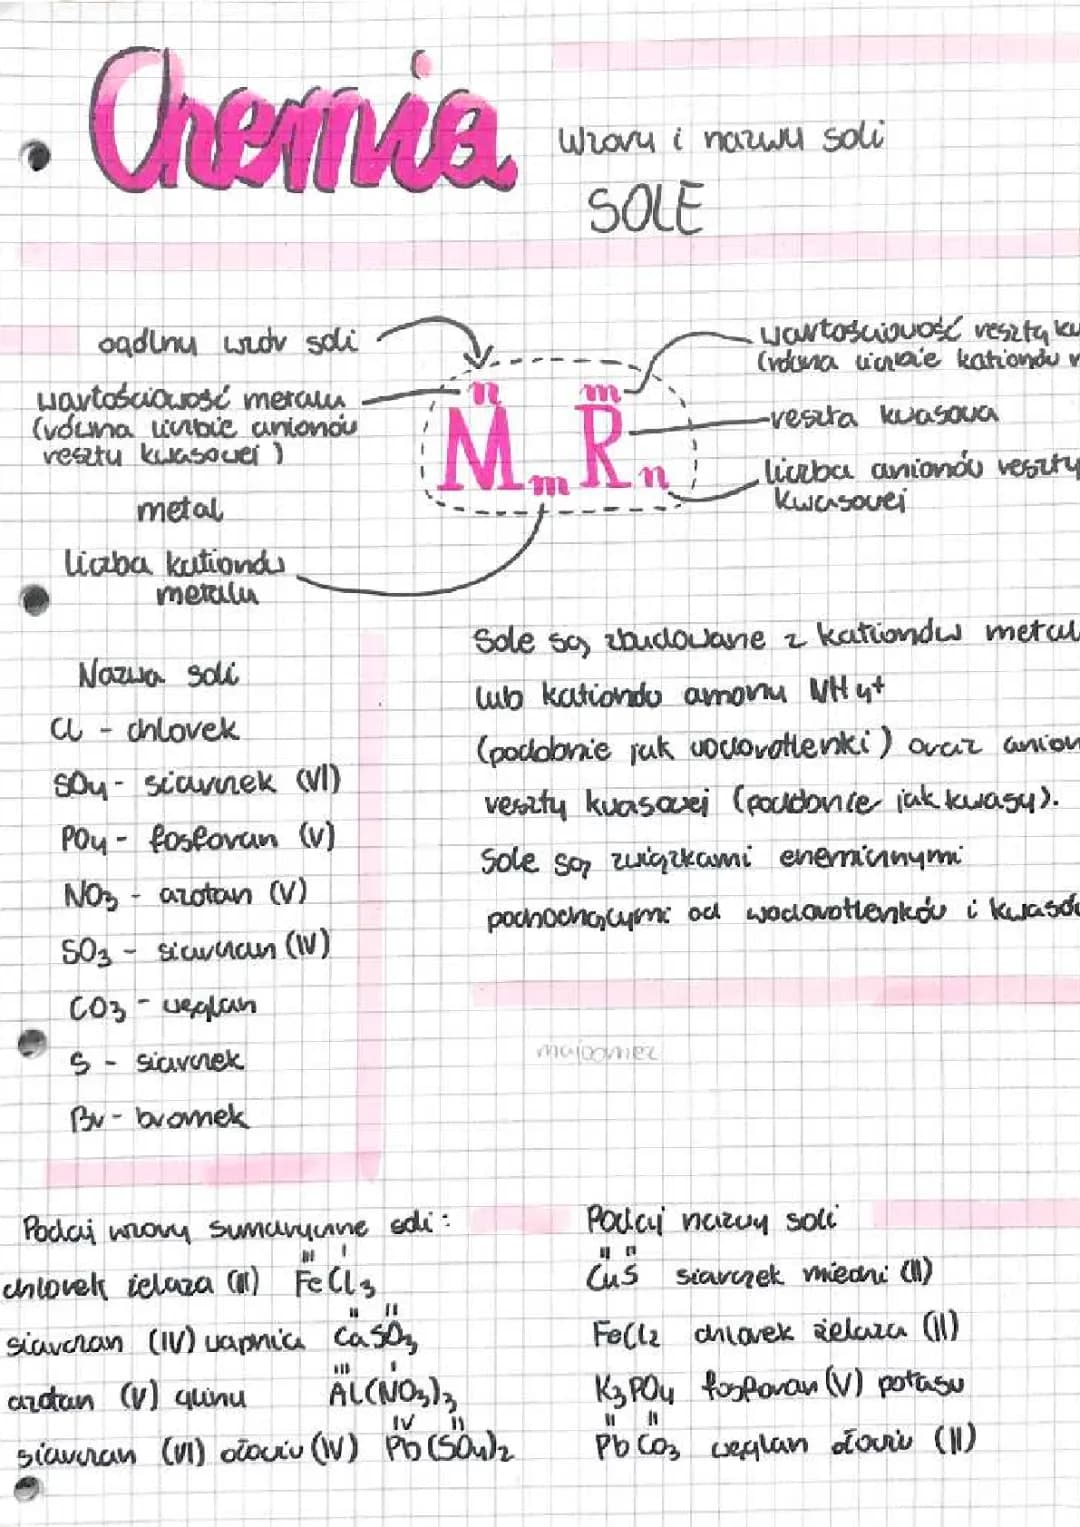 Chemia
Wzory i nazwy soli
SOLE
ogólny wzór soli
wartościowość metalu
(równa liczbie anionów
reszty kwasowej)
metal
liczba kationów
metalu
n m
MmRn
wartościowość reszty kw
(równa liczbie kationów
reszta kwasowa
liczba anionów reszty
kwasowej
Nazwa soli
Cl - chlorek
SO4 - siarczek (VI)
PO4 - fosforan (V)
NO3 - azotan (V)
SO3 - siarczan (IV)
CO3 - węglan
S - siarczek
Br - bromek
Sole są zbudowane z kationów metal
lub kationów amonu NH4+
(podobnie jak wodorotlenki) oraz anion
reszty kwasowej (podobnie jak kwasy).
Sole są związkami chemicznymi
pochodnącymi od wodorotlenków i kwasów
majoomez
Podaj wzory sumaryczne soli:
III I
chlorek żelaza (III) FeCl3
II II
siarczan (IV) wapnia CaSO3
III I
azotan (V) glinu Al(NO3)3
IV II
siarczan (VI) ołowiu (IV) Pb(SO4)2
Podaj nazwy soli
II II
CuS siarczek miedzi (II)
FeCl2 chlorek żelaza (II)
K3PO4 fosforan (V) potasu
II II
PbCO3 węglan ołowiu (II)